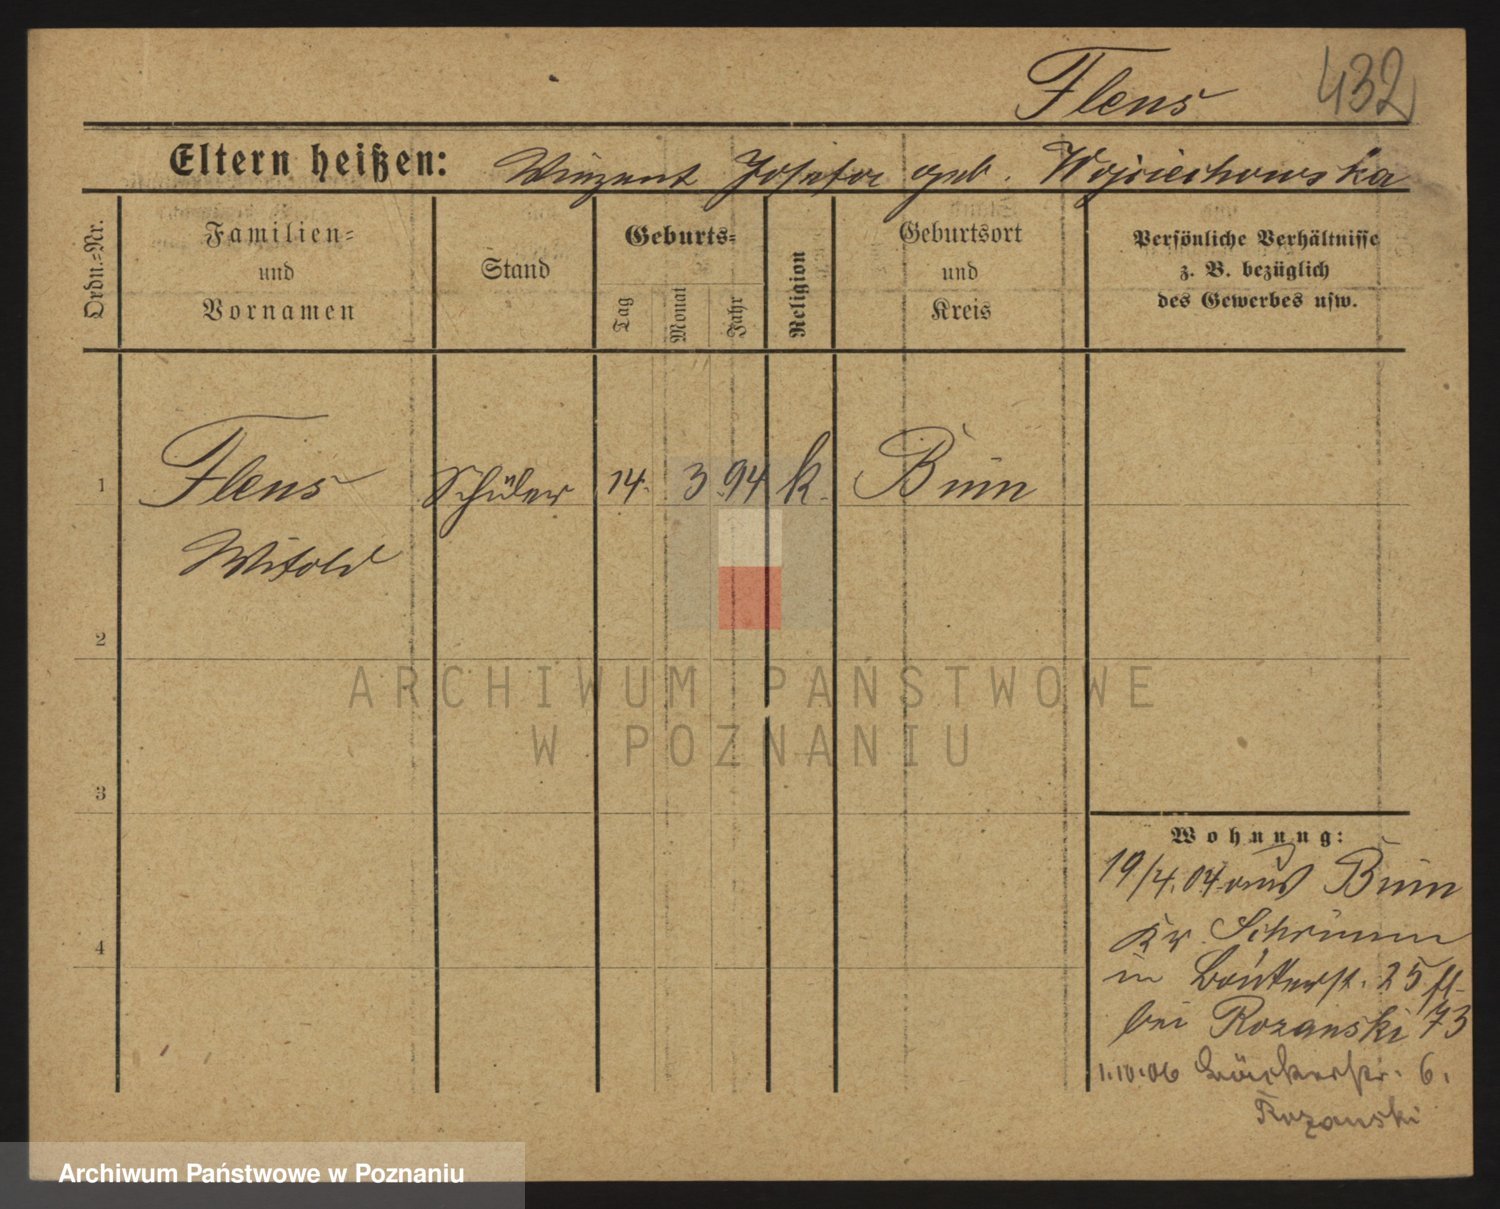 Flens 432
Eltern heißen: Vinzent Josefa geb. Wojciechowska
Ordn.-Nr.
Familien- und Vornamen
Stand
Geburts-
Tag
Monat
Jahr
Religion
Geburtsort und Kreis
Persönliche Verhältnisse z. B. bezüglich des Gewerbes usw.
1 Flens Schüler 14. 3. 94 k. Bnin
Witold
2
3
4
Wohnung:
19/4.04 aus Bnin
Kr. Schrimm
in 25
bei Rozanski 73
1.10.06 Bäckerstr. 6.
Rozanski
ARCHIWUM PAŃSTWOWE
W POZNANIU
Archiwum Państwowe w Poznaniu